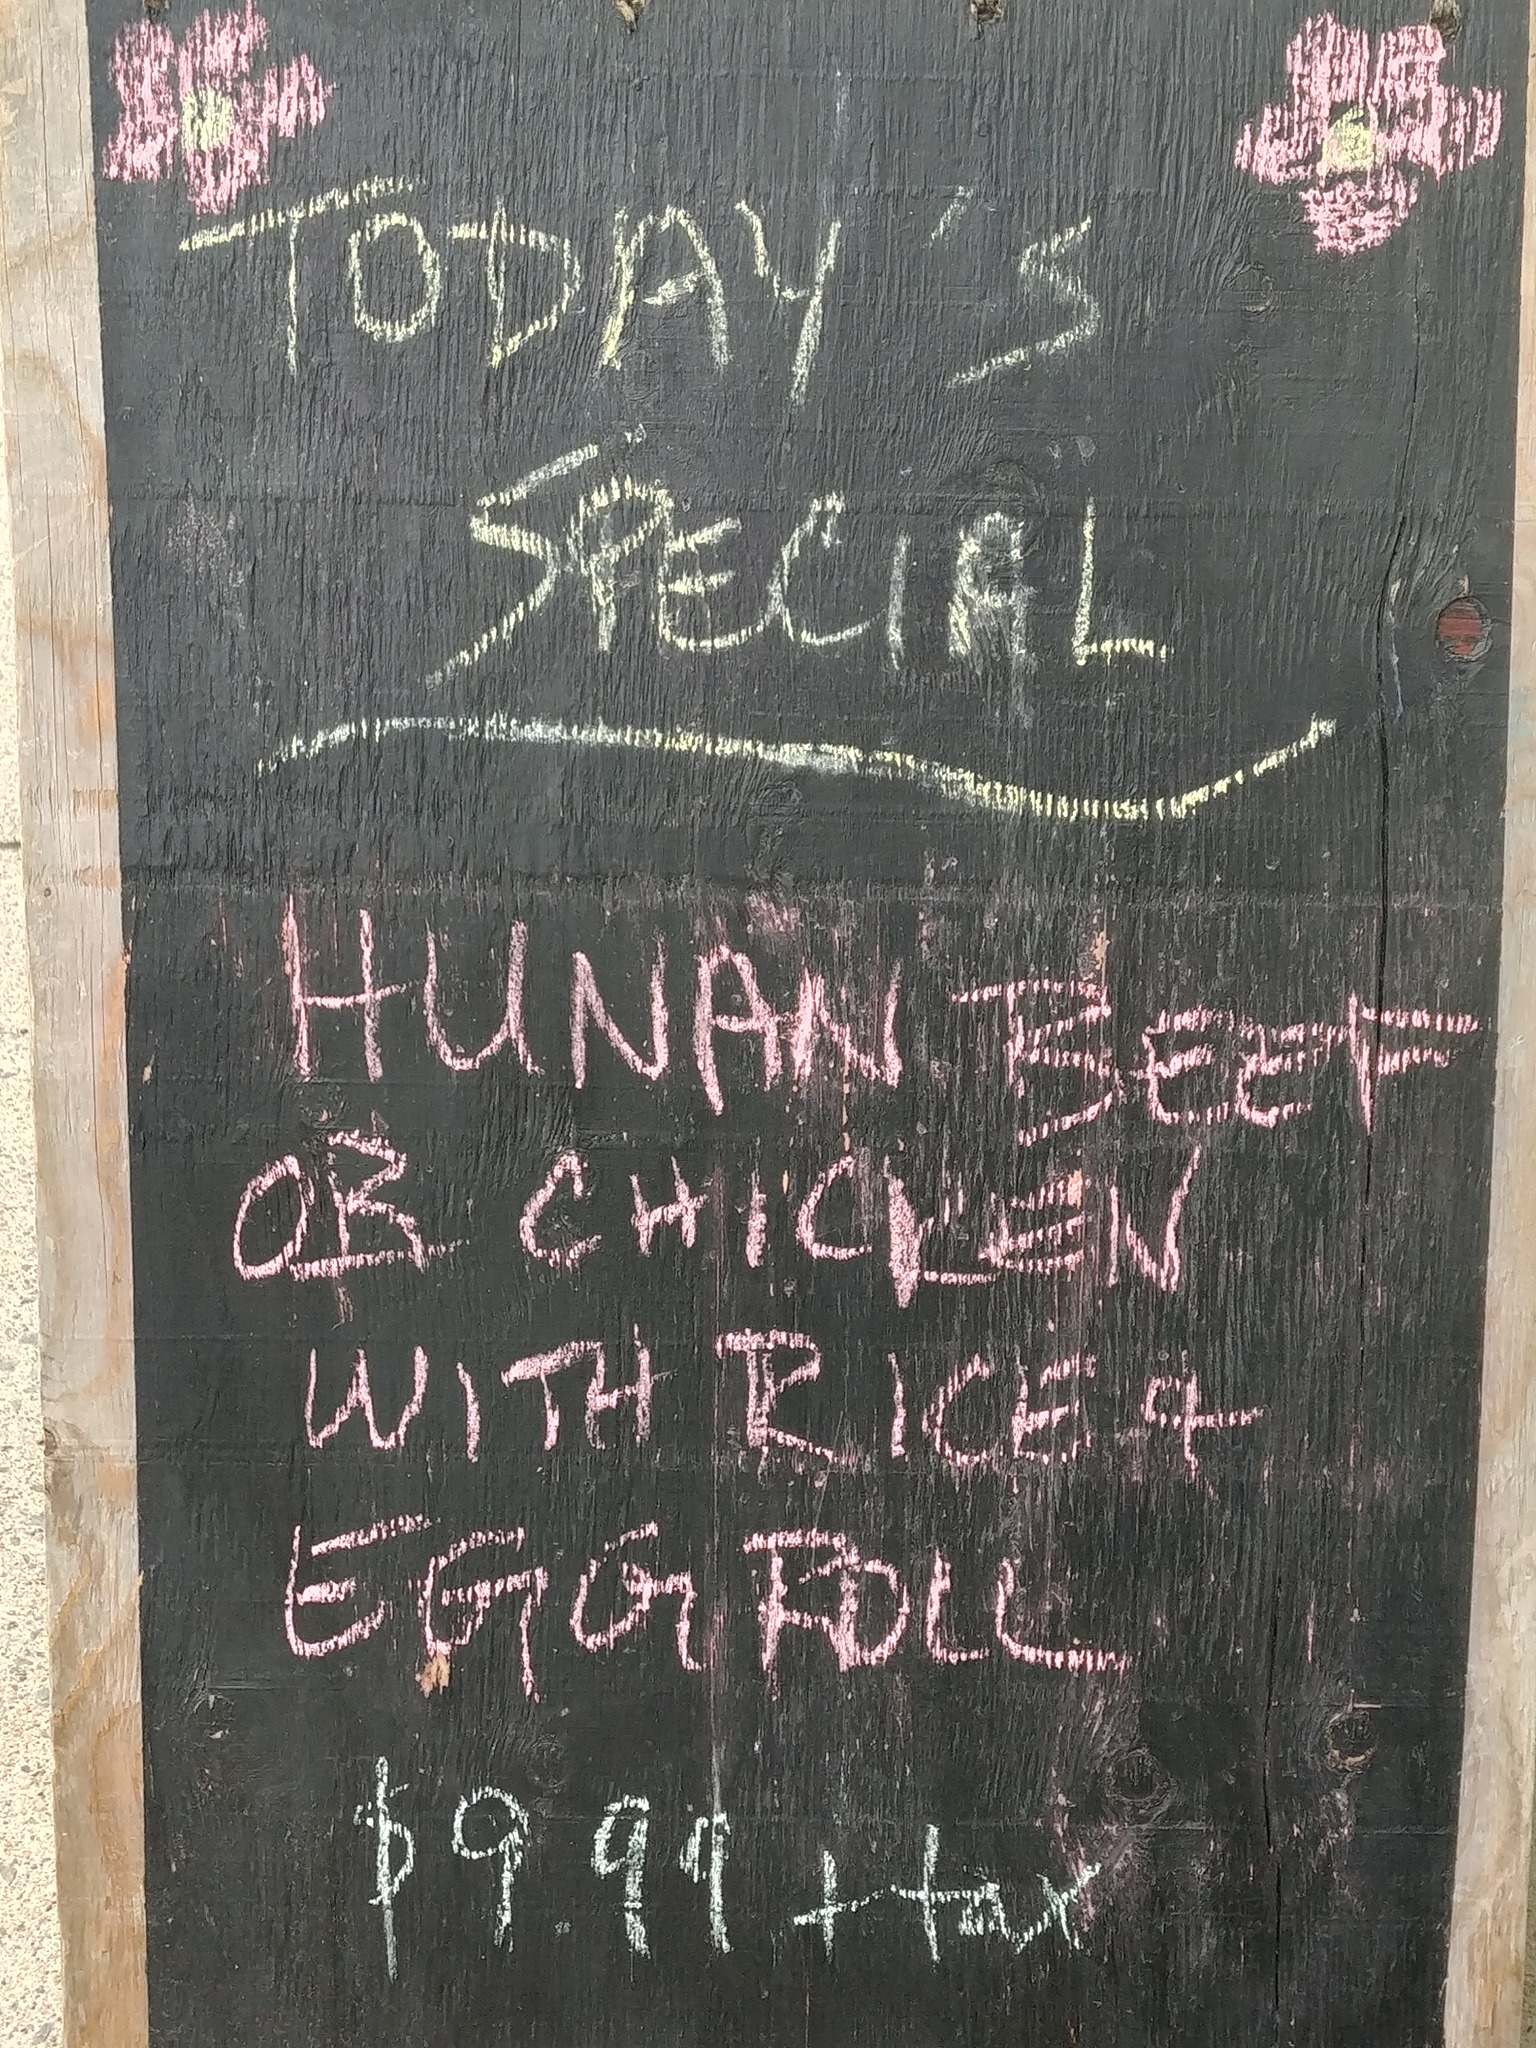 TODAY'S
SPECIAL
HUNAN BEEF
OR CHICKEN
WITH RICE +
EGG ROLL
$9.99 + tax